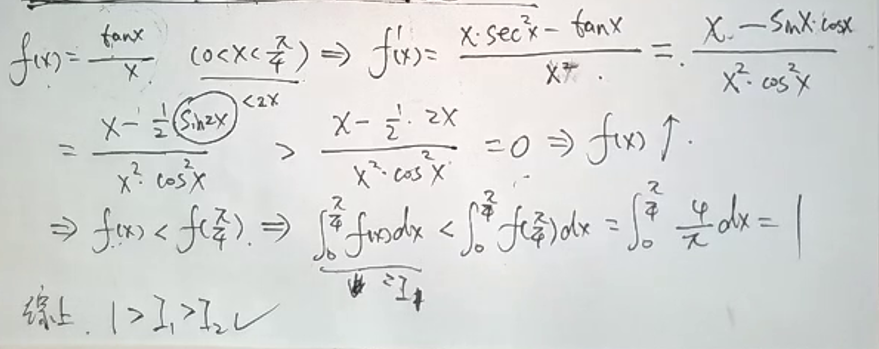 f(x) = tanx / x (0<x<π/4) ⇒ f'(x) = (x·sec²x − tanx) / x² = (x − sinx·cosx) / (x²·cos²x)
= (x − 1/2 sin2x) / (x²·cos²x) <2x > (x − 1/2·2x) / (x²·cos²x) = 0 ⇒ f(x)↑.
⇒ f(x) < f(π/4). ⇒ ∫₀^(π/4) f(x)dx < ∫₀^(π/4) f(π/4)dx = ∫₀^(π/4) 4/π dx = 1
= I₁
综上. 1>I₁>I₂ ✓